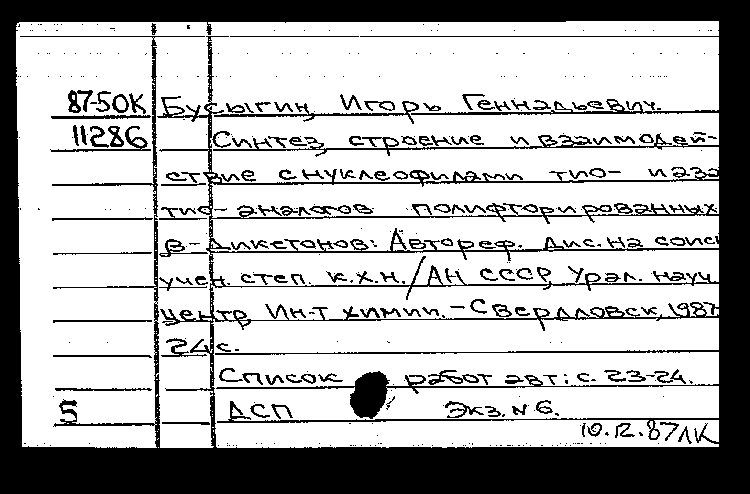 87-50К Бусыгин, Игорь Геннадьевич.
11286 Синтез, строение и взаимодей-
ствие с нуклеофилами тио- и аза
тио-аналогов полифторированных
β-дикетонов: Автореф. дис. на соиск
учен. степ. к.х.н. / АН СССР, Урал. науч.
центр, Ин-т химии. - Свердловск, 1987
24 с.
Список работ авт: с. 23-24.
5 ДСП Экз. N 6.
10.12.87 ЛК